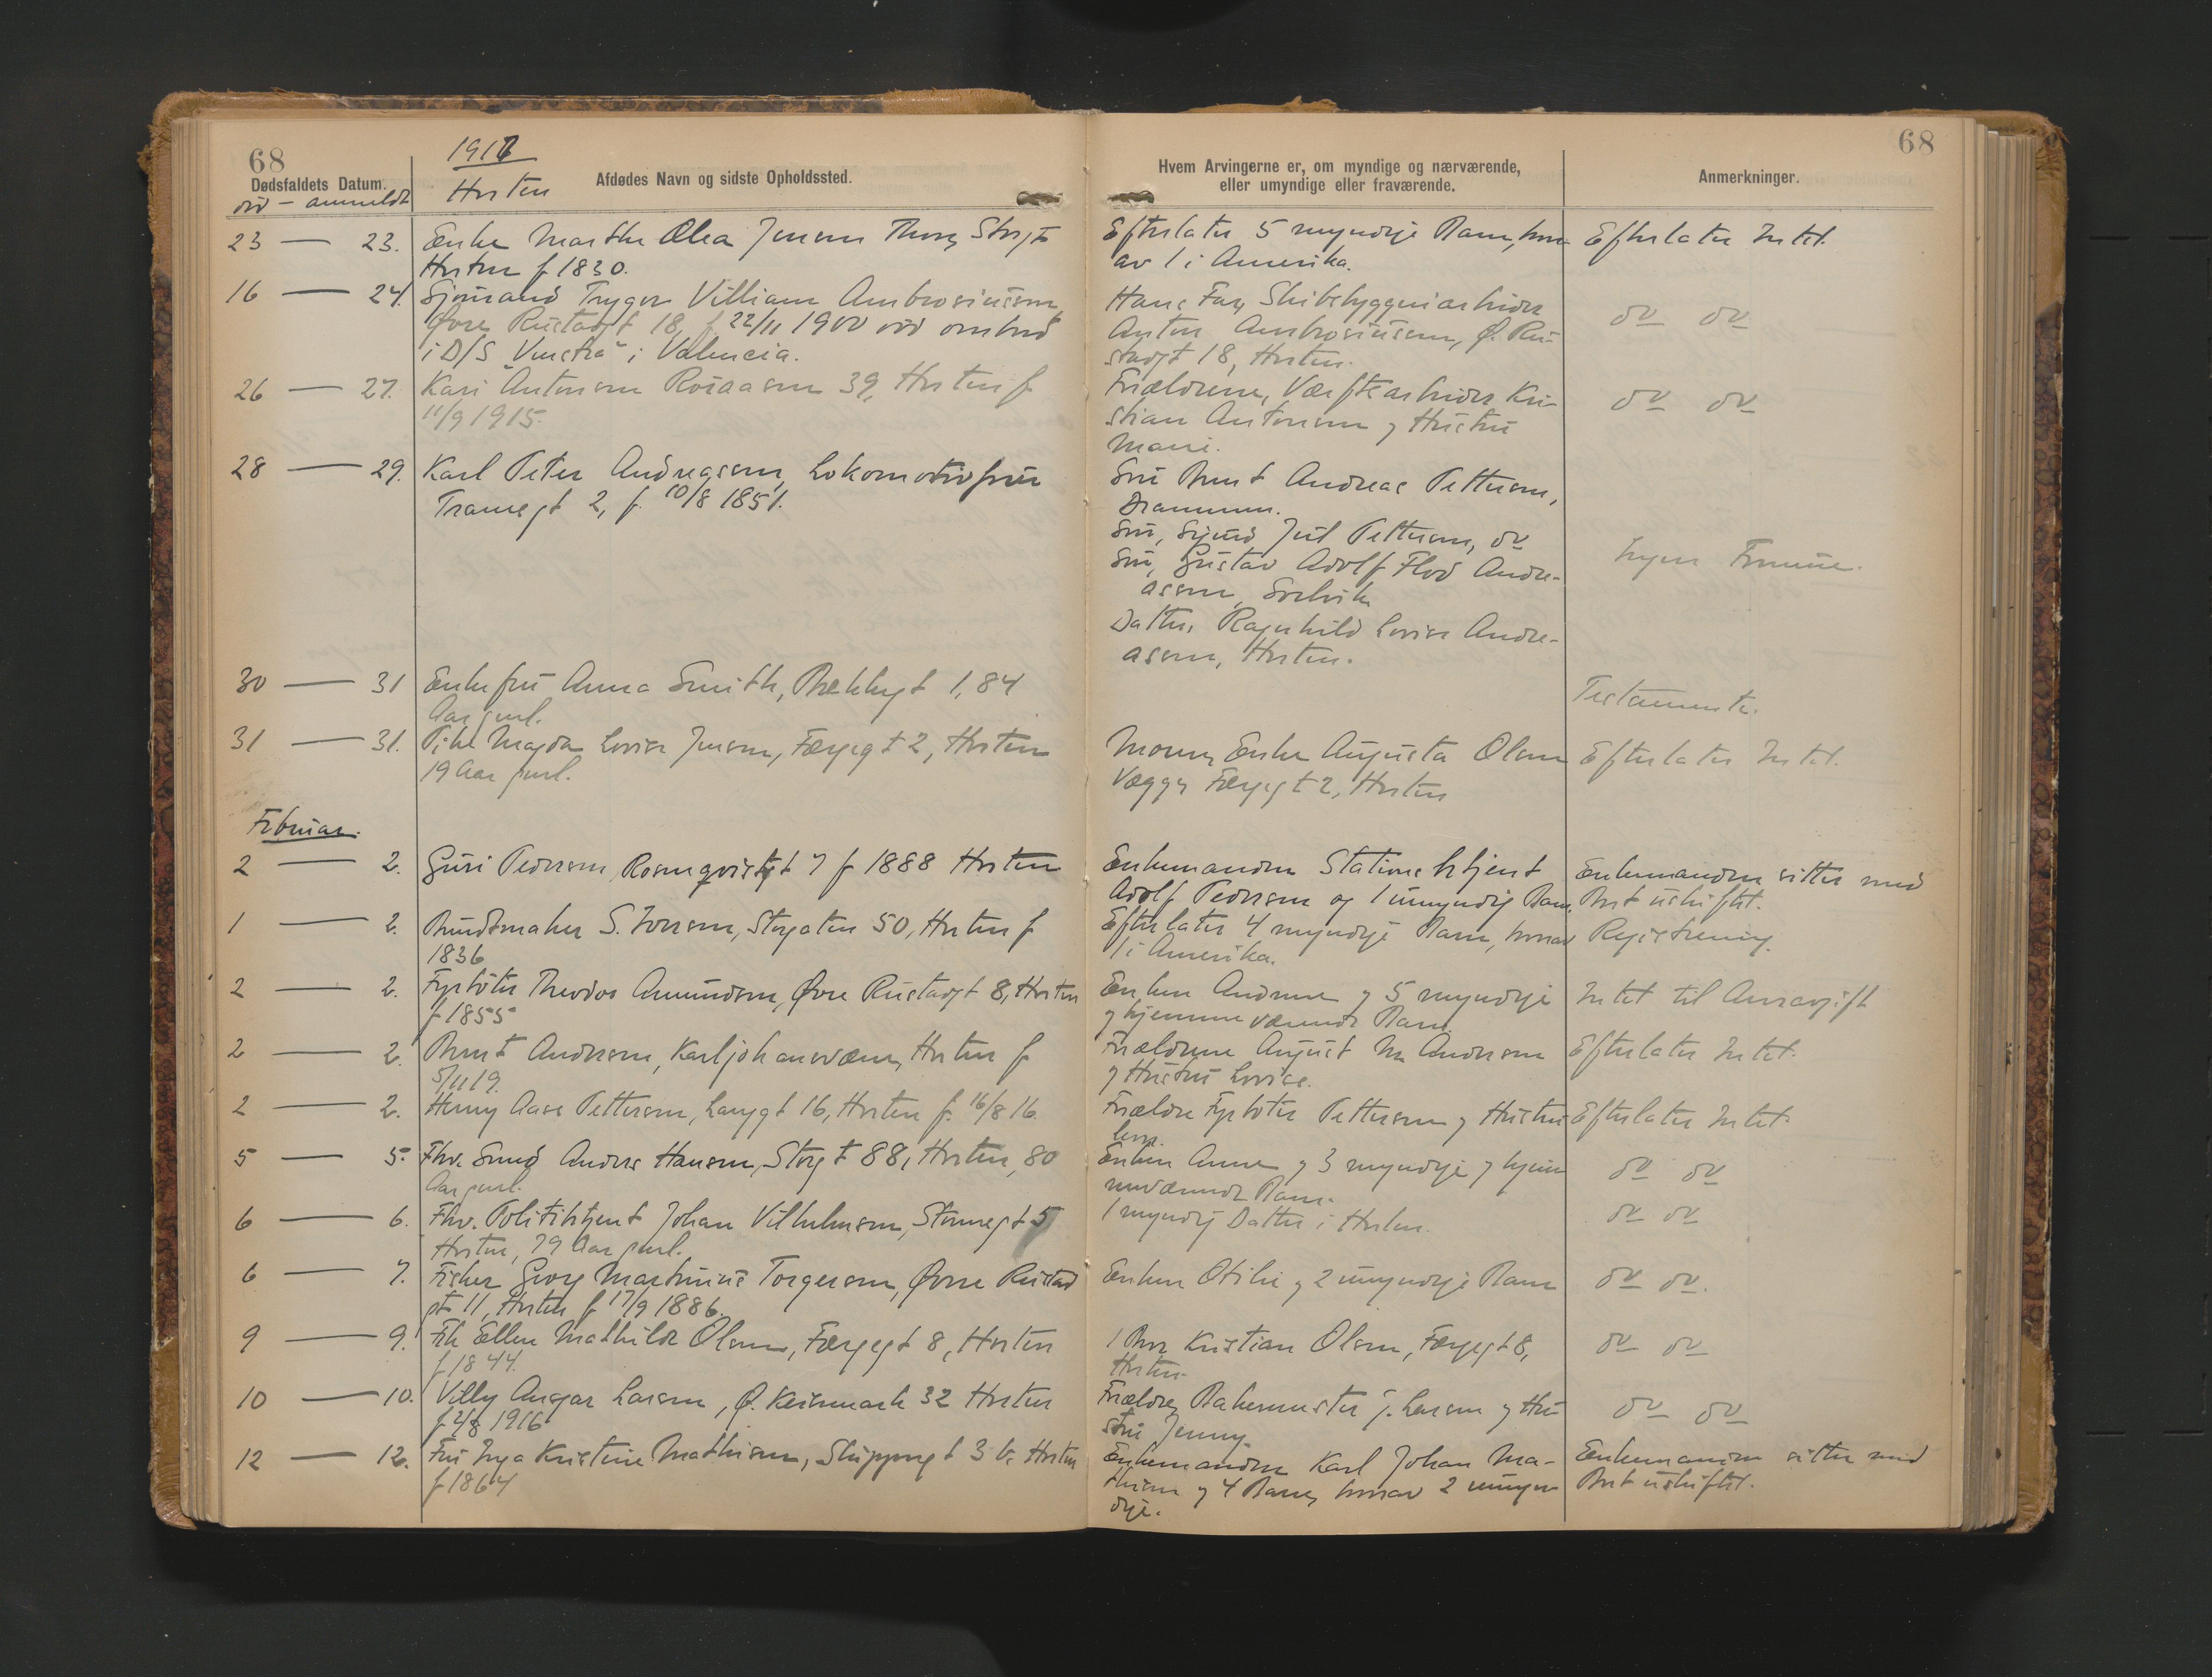 68
1917
Horten
Dødsfaldets Datum.
død - anmeldt
Afdødes Navn og sidste Opholdssted.
Hvem Arvingerne er, om myndige og nærværende,
eller umyndige eller fraværende.
Anmerkninger.
68
23 — 23. Enke Marthe Olea Jensen Storgt
Horten f 1830.
Efterlater 5 myndige Barn, hvor-
av 1 i Amerika.
Efterlater Intet.
16 — 24. Sjømand Trygve Villiam Ambrosiussen,
Øvre Rustadgt 18, f. 22/11 1900 død ombord
i D/S "Venstra" i Valencia.
Hans Far, Skibsbyggeriarbeider
Anton Ambrosiussen, Ø. Ru-
stadgt 18, Horten.
do do
26 — 27. Kari Antonsen Roraasen 39, Horten f
11/9 1915.
Forældrene, Værftsarbeider Kri-
stian Antonsen og Hustru
Marie.
do do
28 — 29. Karl Peter Andreasen, Lokomotivfører
Tramegt 2, f. 10/8 1851.
Søn Bernt Andreas Pettersen,
Drammen.
Søn, Sigurd Juel Pettersen, do
Søn, Gustav Adolf Flod Andre-
asen, Svelvik
Datter, Ragnhild Lovise Andre-
asen, Horten.
Ingen Formue.
30 — 31 Enkefru Anna Smith, Bekkegt 1, 84
Aar gml.
Testamente.
31 — 31. Pike Magda Lovise Jensen, Færgegt 2, Horten
19 Aar gml.
Moren, Enke Augusta Olsen
Færgegt 2, Horten
Efterlater Intet.
Februar.
2 — 2. Guri Pedersen, Rosenqvistgt 7 f 1888 Horten
Enkemanden Stationsbetjent
Adolf Pedersen og 1 umyndig Barn.
Enkemanden sitter med
Bo uskiftet.
1 — 2. Buntmaker S. Iversen, Storgaten 50, Horten f
1836
Efterlater 4 myndige Barn, hvorav
1 i Amerika.
Registrering.
2 — 2. Fyrbøter Theodor Amundsen, Øvre Rustadgt 8, Horten
f 1855
Enken Andrine og 5 myndige
og hjemmeværende Barn.
Intet til Arveavgift
2 — 2. Bernt Andersen, Karljohansværn, Horten f
5/11 19.
Forældrene August M. Andersen
og Hustru Lovise.
Efterlater Intet.
2 — 2. Henny Aase Pettersen, Langgt 16, Horten f. 16/8 16
Forældre Fyrbøter Pettersen og Hustru
Efterlater Intet.
5 — 5. Fhv. Smed Anders Hansen, Storgt 88, Horten, 80
Aar gml.
Enken Anne og 3 myndige og hjem-
meværende Barn.
do do
6 — 6. Fhv. Politibetjent Johan Vilhelmsen, Stennegt 5
Horten, 79 Aar gml.
1 myndig Datter i Horten.
do do
6 — 7. Fisker Georg Martinius Torgersen, Øvre Rustad
gt 11, Horten f 17/9 1886.
Enken Otilie og 2 umyndige Barn
do do.
9 — 9. Frk Ellen Mathilde Olsen, Færgegt 8, Horten
f 1844.
1 Bror Kristian Olsen, Færgegt 8,
Horten.
do do
10 — 10. Villy Ansgar Larsen, Ø. Keisemark 32 Horten
f 2/8 1916
Forældre, Bakermester J. Larsen og Hu-
stru Jenny.
do do
12 — 12. Fru Inga Kristine Mathisen, Skippergt 3 b. Horten
f 1864
Enkemanden Karl Johan Ma-
thisen og 4 Barn, hvorav 2 umyn-
dige.
Enkemanden sitter med
Bo uskiftet.